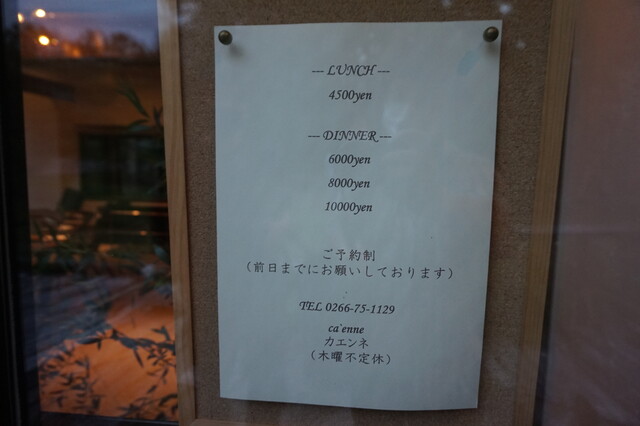 --- LUNCH ---
4500yen
--- DINNER ---
6000yen
8000yen
10000yen
ご予約制
（前日までにお願いしております）
TEL 0266-75-1129
ca'enne
カエンネ
（木曜不定休）